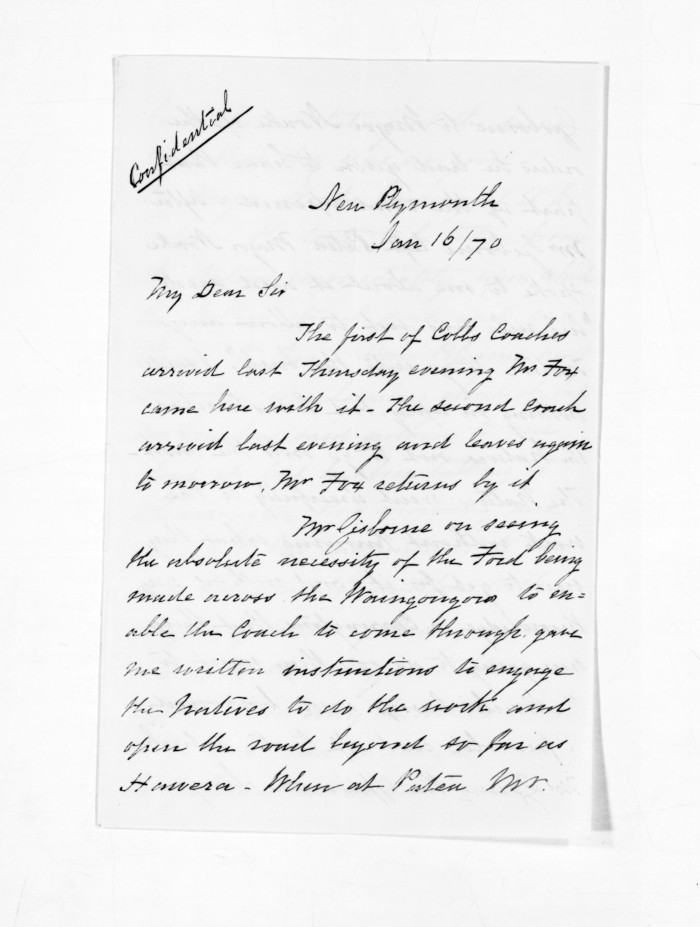 Confidential
New Plymouth
Jan 16/70
My Dear Sir
The first of Cobbs Coaches
arrived last Thursday evening Mr Fox
came here with it - The second coach
arrived last evening and leaves again
to morrow. Mr Fox returns by it
Mr Gisborne on seeing
the absolute necessity of the Ford being
made across the Waingongoro to en=
able the Coach to come through gave
me written instructions to engage
the Natives to do the work and
open the road beyond so far as
Hawera - When at Patea Mr.